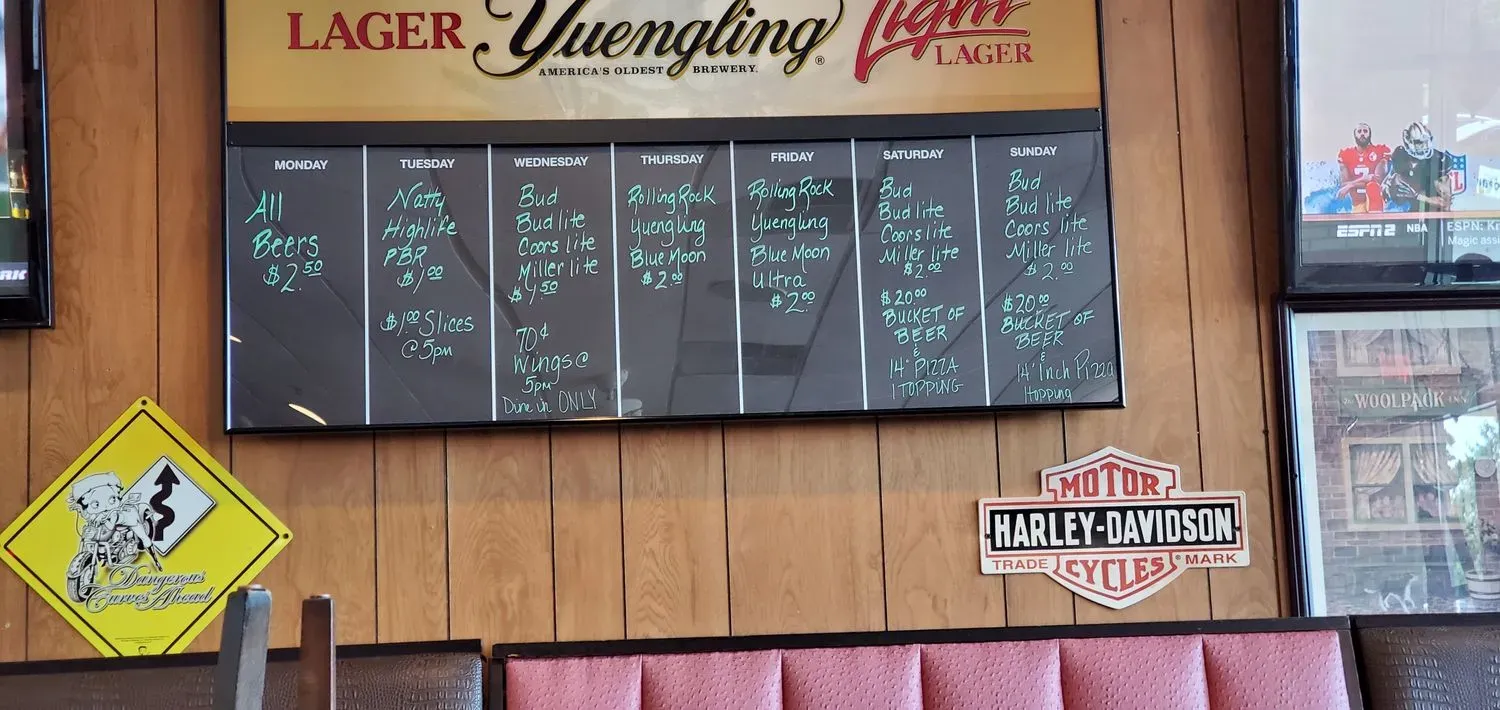 LAGER
Yuengling®
AMERICA'S OLDEST BREWERY.
Light
LAGER
MONDAY
All
Beers
$2.50
TUESDAY
Natty
Highlife
PBR
$1.00
$1.00 Slices
@5pm
WEDNESDAY
Bud
Bud lite
Coors lite
Miller lite
$1.50
70¢
Wings@
5pm
Dine in ONLY
THURSDAY
Rolling Rock
Yuengling
Blue Moon
$2.00
FRIDAY
Rolling Rock
Yuengling
Blue Moon
Ultra
$2.00
SATURDAY
Bud
Bud lite
Coors lite
Miller lite
$2.00
$20.00
BUCKET OF
BEER
&
14" PIZZA
1 TOPPING
SUNDAY
Bud
Bud lite
Coors lite
Miller lite
$2.00
$20.00
BUCKET OF
BEER
&
14" Inch Pizza
1 topping
RK
7
NFL
ESPN2 NBA
ESPN:
Magic
WOOLPACK INN
Dangerous
Curves Ahead
MOTOR
HARLEY-DAVIDSON
TRADE CYCLES® MARK